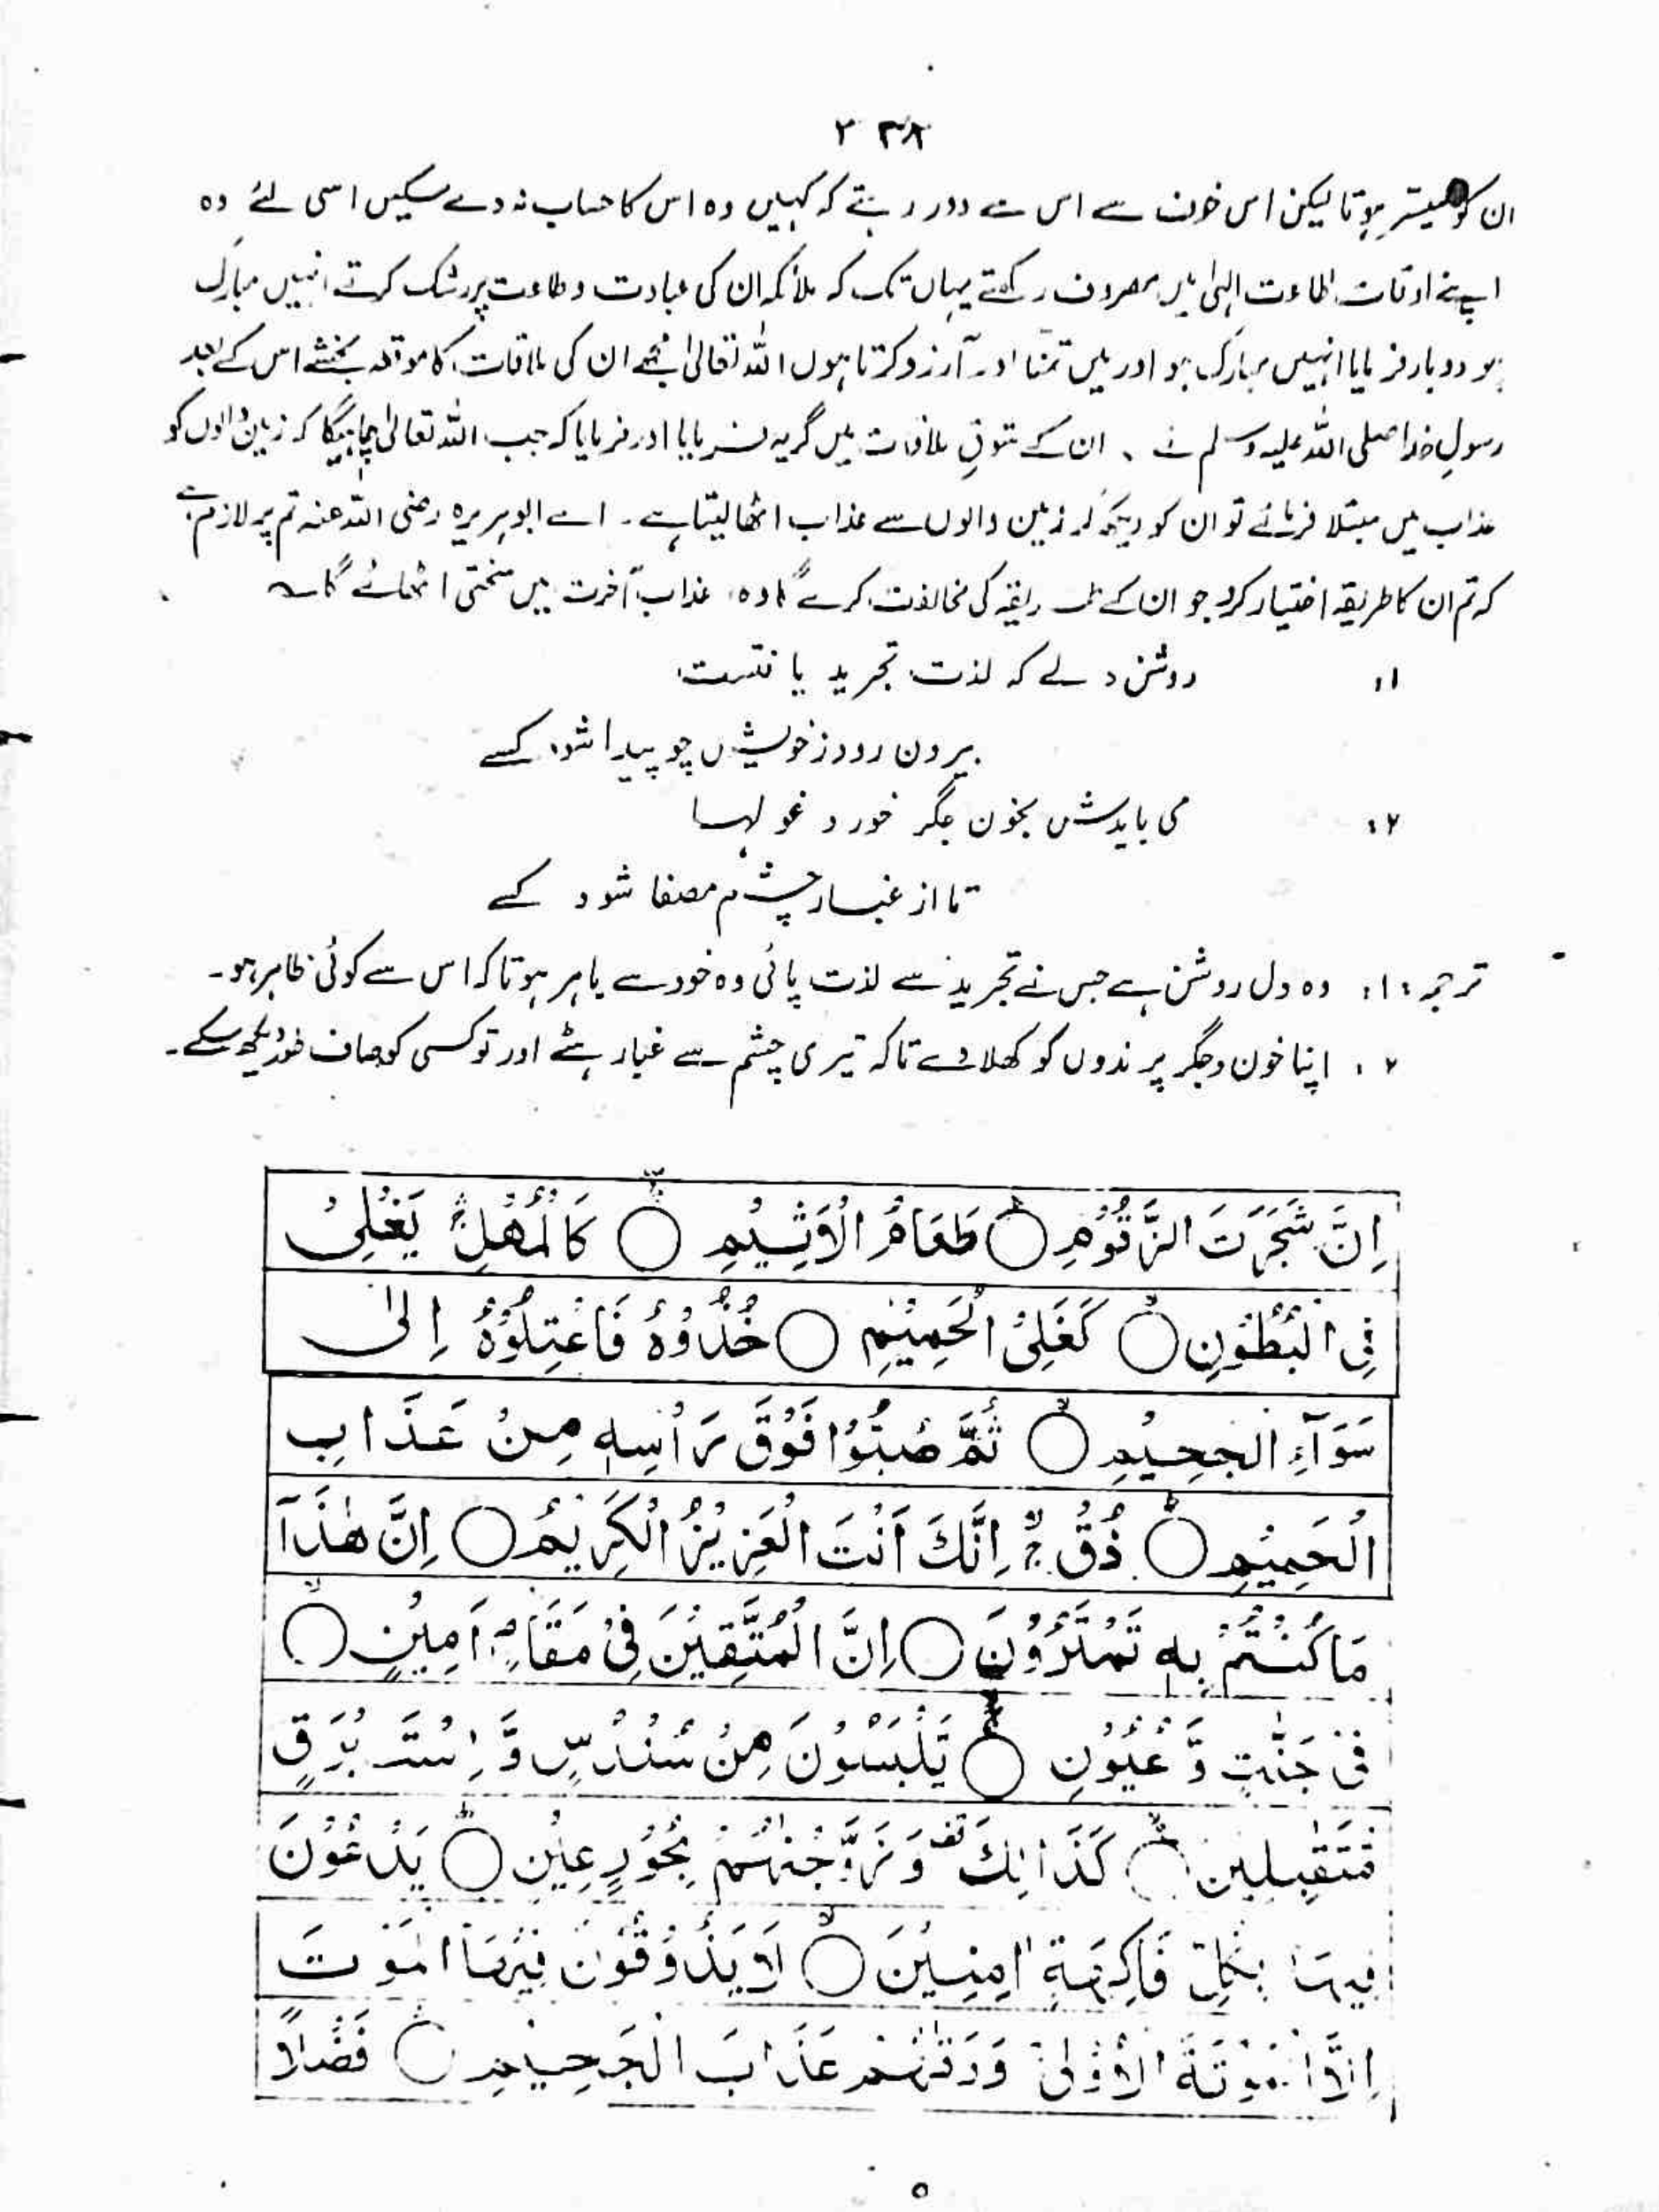 ۲۳۸
ان کو میسّر ہوتا لیکن اس خوف سے اس سے دور رہتے کہ کہیں وہ اس کا حساب نہ دے سکیں اسی لئے وہ
اپنے اوقات اطاعت الٰہی میں مصروف رکھتے یہاں تک کہ ملائکہ ان کی عبادت و طاعت پر رشک کرتے انہیں مبارک
ہو دوبار فرمایا انہیں مبارک ہو اور میں تمنّا اور آرزو کرتا ہوں اللہ تعالیٰ مجھے ان کی ملاقات کا موقعہ بخشے اس کے بعد
رسولِ خدا صلی اللہ علیہ وسلم نے ان کے شوقِ ملاقات میں گریہ فرمایا اور فرمایا کہ جب اللہ تعالیٰ چاہیگا کہ زمین والوں کو
عذاب میں مبتلا فرمائے تو ان کو دیکھ کر زمین والوں سے عذاب اٹھا لیتا ہے۔ اے ابوہریرہ رضی اللہ عنہ تم پر لازم ہے
کہ تم ان کا طریقہ اختیار کرو جو ان کے طریقہ کی مخالفت کرے گا وہ عذاب آخرت میں سختی اٹھائے گا ؎
۱: روشن دلے کہ لذت تجرید یافتست
بیرون رود ز خویش چو پیدا شود کسے
۲: می بایدش بخون جگر خورد غولہا
تا از غبار چشم مصفا شود کسے
ترجمہ ۱: وہ دل روشن ہے جس نے تجرید سے لذت پائی وہ خود سے باہر ہو تاکہ اس سے کوئی ظاہر ہو۔
۲: اپنا خون و جگر پرندوں کو کھلا دے تاکہ تیری چشم سے غبار ہٹے اور تو کسی کو صاف خود دیکھ سکے۔
اِنَّ شَجَرَتَ الزَّقُّوْمِ ○ طَعَامُ الْاَثِيْمِ ○ كَالْمُهْلِ ۛ يَغْلِىْ
فِى الْبُطُوْنِ ○ كَغَلْىِ الْحَمِيْمِ ○ خُذُوْهُ فَاعْتِلُوْهُ اِلٰى
سَوَآءِ الْجَحِيْمِ ○ ثُمَّ صُبُّوْا فَوْقَ رَاْسِهٖ مِنْ عَذَابِ
الْحَمِيْمِ ○ ذُقْ ۛ اِنَّكَ اَنْتَ الْعَزِيْزُ الْكَرِيْمُ ○ اِنَّ هٰذَا
مَا كُنْتُمْ بِهٖ تَمْتَرُوْنَ ○ اِنَّ الْمُتَّقِيْنَ فِىْ مَقَامٍ اَمِيْنٍ ○
فِىْ جَنّٰتٍ وَّ عُيُوْنٍ ○ يَّلْبَسُوْنَ مِنْ سُنْدُسٍ وَّ اِسْتَبْرَقٍ
مُّتَقٰبِلِيْنَ ○ كَذٰلِكَ قف وَ زَوَّجْنٰهُمْ بِحُوْرٍ عِيْنٍ ○ يَدْعُوْنَ
فِيْهَا بِكُلِّ فَاكِهَةٍ اٰمِنِيْنَ ○ لَا يَذُوْقُوْنَ فِيْهَا الْمَوْتَ
اِلَّا الْمَوْتَةَ الْاُوْلٰى وَ وَقٰهُمْ عَذَابَ الْجَحِيْمِ ○ فَضْلًا